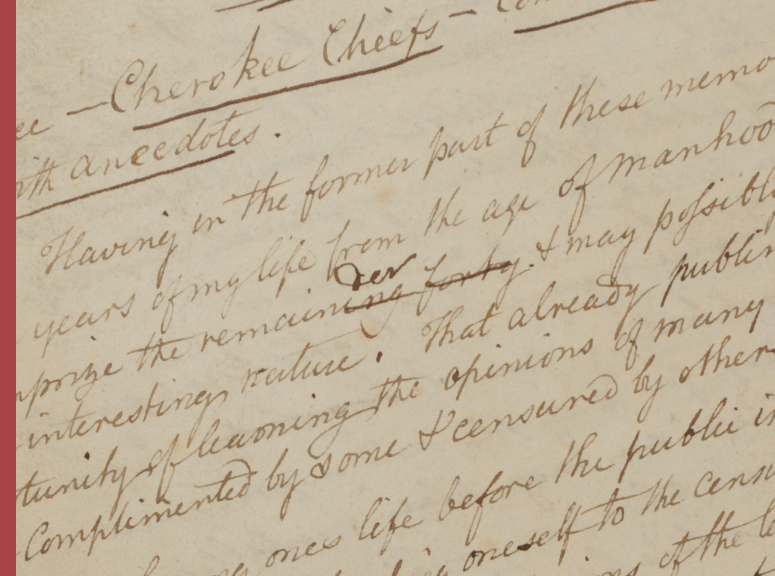 ee — Cherokee Chiefs — Con
ith anecdotes.
Having in the former part of these memo
years of my life from the age of manhoo
mprize the remainder & may possibl
interesting nature. That already publi
tunity of learning the opinions of many
complimented by some & censured by other
ones life before the public i
oneself to the cens
of the l